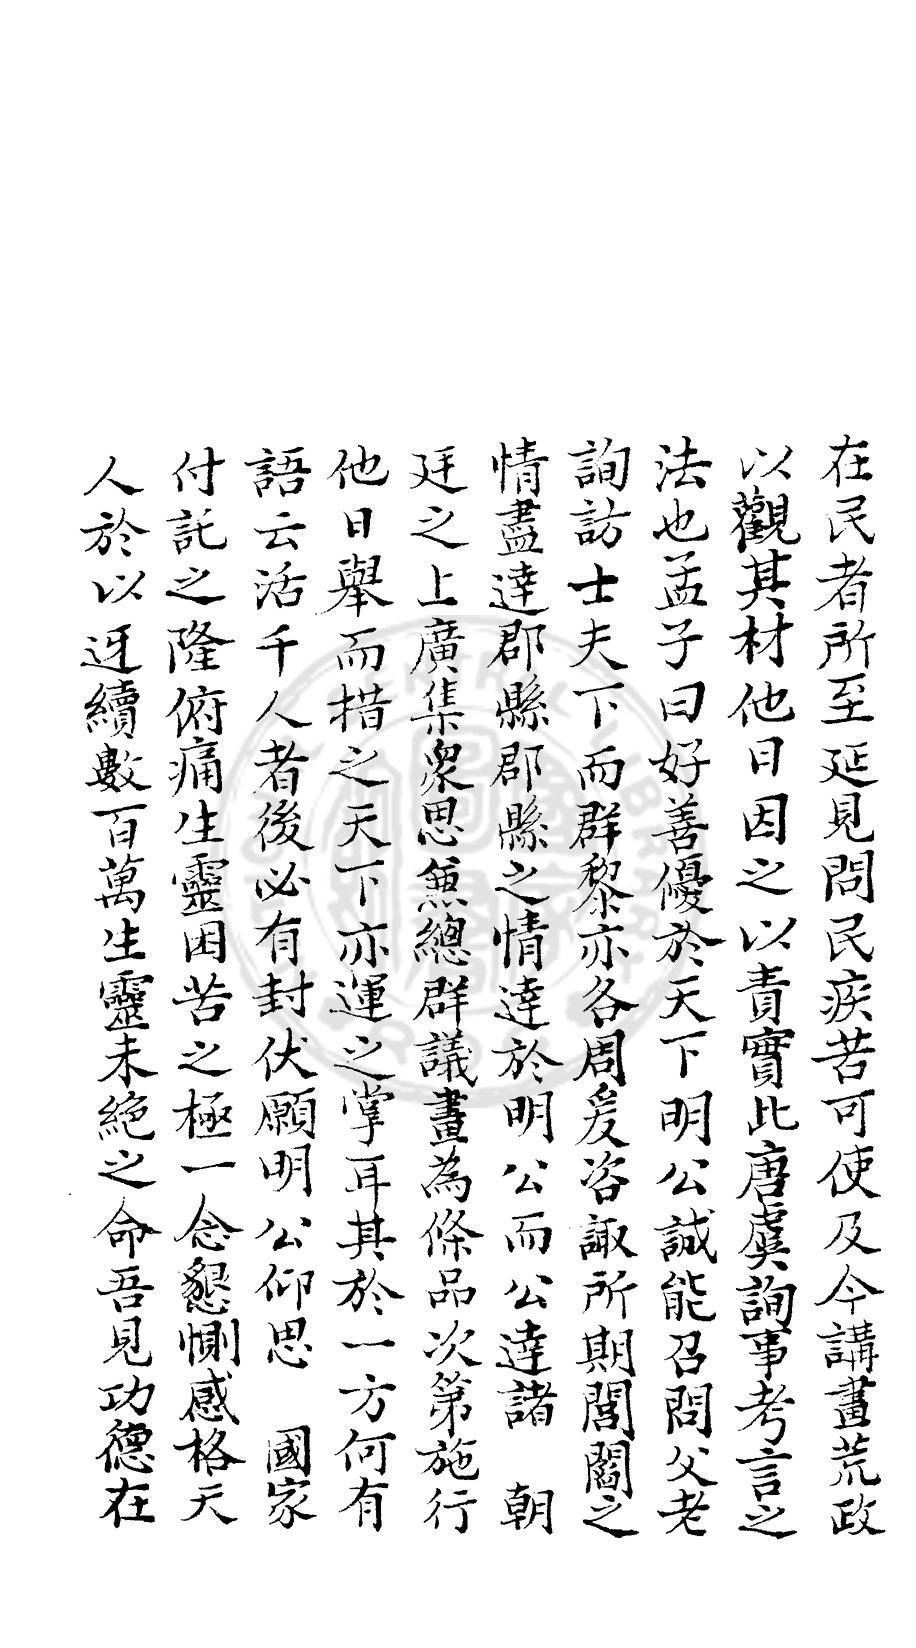 在民者所至延見問民疾苦可使及今講畫荒政
以觀其材他日因之以責實此唐虞詢事考言之
法也孟子曰好善優於天下明公誠能召問父老
詢訪士夫下而群黎亦各周爰咨諏所期閭閻之
情盡達郡縣郡縣之情達於明公而公達諸　朝
廷之上廣集衆思兼總群議畫為條品次第施行
他日舉而措之天下亦運之掌耳其於一方何有
語云活千人者後必有封伏願明公仰思　國家
付託之隆俯痛生靈困苦之極一念懇惻感格天
人於以迓續數百萬生靈未絶之命吾見功德在